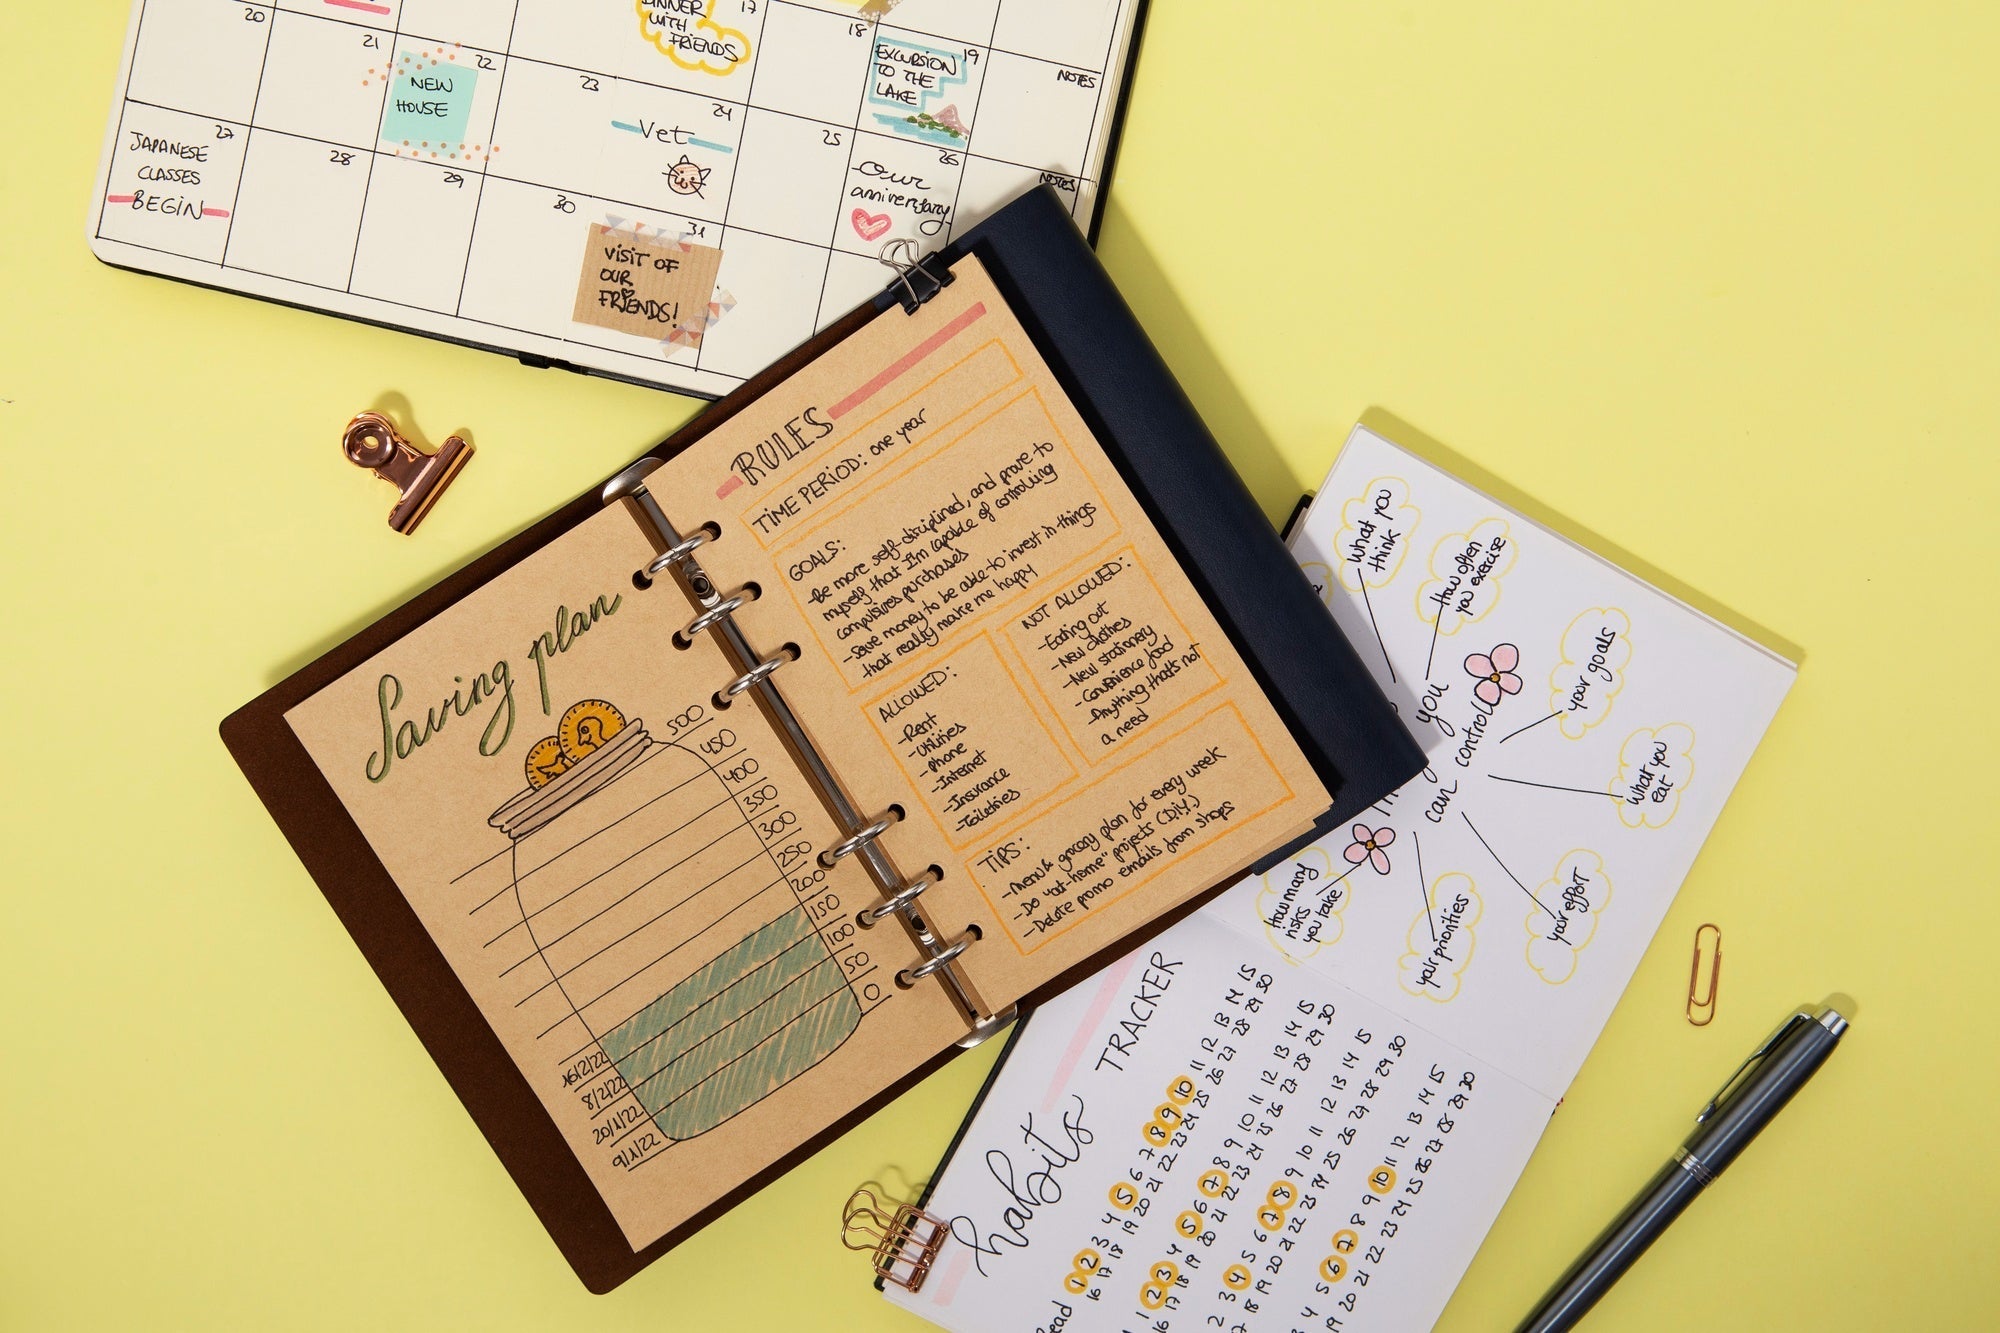 17
DINNER
WITH
FRIENDS
18
19
EXCURSION
TO THE
LAKE
NOTES
20
21
22
NEW
HOUSE
23
24
Vet
25
26
Our
anniversary
NOTES
27
JAPANESE
CLASSES
BEGIN
28
29
30
31
VISIT OF
OUR
FRIENDS!
Saving plan
500
450
400
350
300
250
200
150
100
50
0
16/2/22
8/2/22
20/1/22
9/1/22
RULES
TIME PERIOD: one year
GOALS:
-Be more self-disciplined, and prove to
myself that I'm capable of controlling
compulsives purchases
-Save money to be able to invest in things
that really make me happy
ALLOWED:
-Rent
-Utilities
-Phone
-Internet
-Insurance
-Toiletries
NOT ALLOWED:
-Eating out
-New clothes
-New stationery
-Convenience food
-Anything that's not
a need
TIPS:
-Menu & grocery plan for every week
-Do "at-home" projects (DIY)
-Delete promo emails from shops
you
can control
What you
think
How often
you exercise
your goals
What you
eat
your effort
your priorities
How many
risks
you take
habits TRACKER
1 2 3 4 5 6 7 8 9 10 11 12 13 14 15
16 17 18 19 20 21 22 23 24 25 26 27 28 29 30
1 2 3 4 5 6 7 8 9 10 11 12 13 14 15
16 17 18 19 20 21 22 23 24 25 26 27 28 29 30
2 3 4 5 6 7 8 9 10 11 12 13 14 15
18 19 20 21 22 23 24 25 26 27 28 29 30
4 5 6 7 8 9 10 11 12 13 14 15
19 20 21 22 23 24 25 26 27 28 29 30